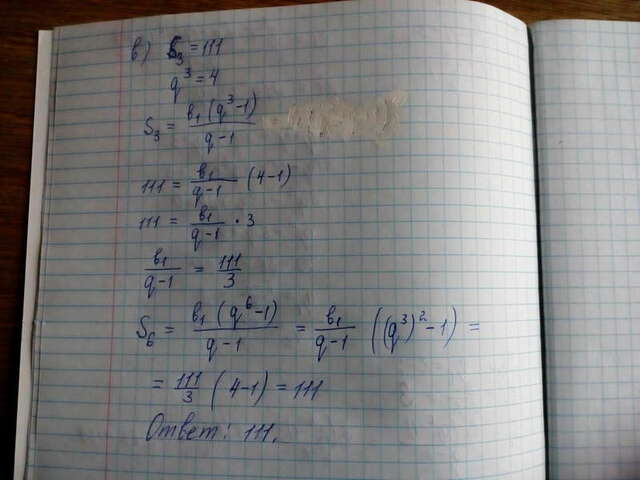 в) S₃ = 111
q³ = 4
S₃ = в₁ (q³-1) / q-1
111 = в₁ / q-1 (4-1)
111 = в₁ / q-1 • 3
в₁ / q-1 = 111 / 3
S₆ = в₁ (q⁶-1) / q-1 = в₁ / q-1 ((q³)² - 1) =
= 111 / 3 (4-1) = 111
Ответ: 111.